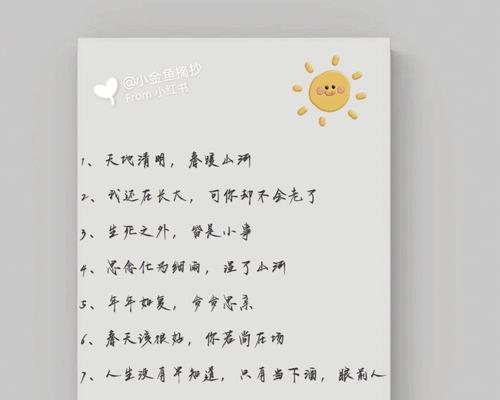 @小金鱼摘抄
From 小红书
1、天地清明，春暖山河
2、我还在长大，可你却不会老了
3、生死之外，皆是小事
4、思念化为细雨，湿了山河
5、年年如复，岁岁思亲
6、春天该很好，你若尚在场
7、人生没有早知道，只有当下酒，眼前人